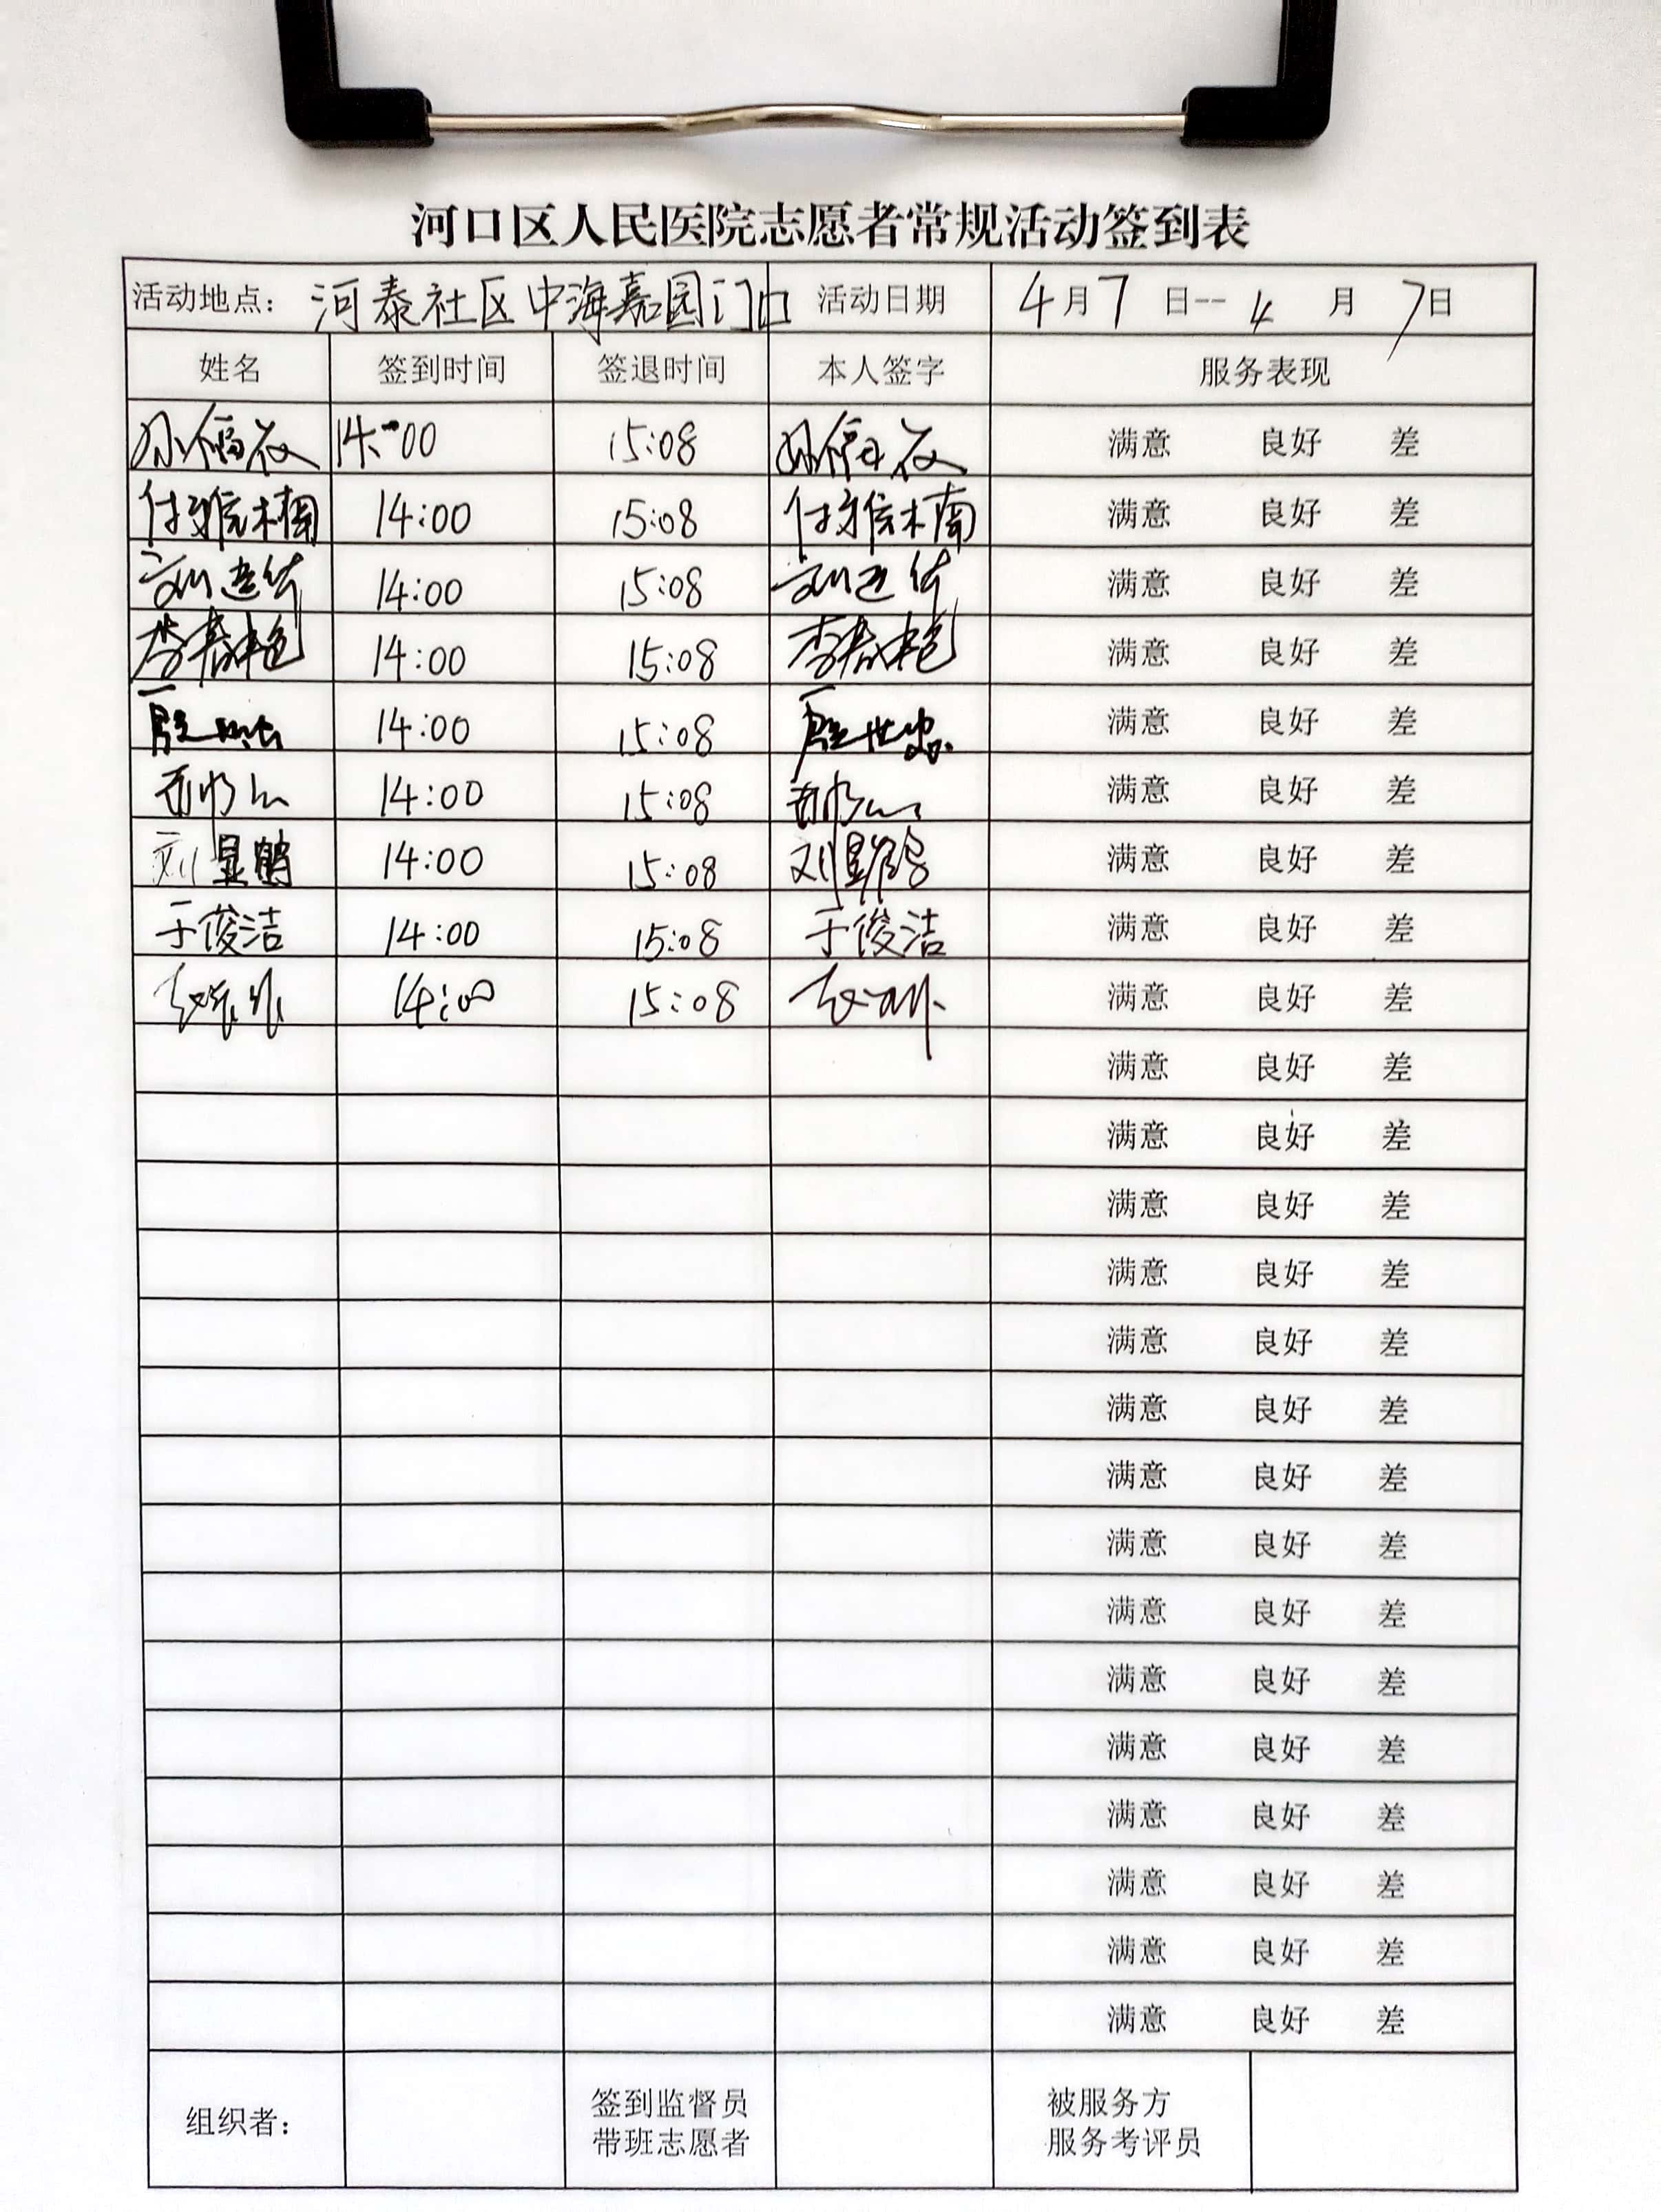 河口区人民医院志愿者常规活动签到表
活动地点: 河泰社区中海嘉园门口 活动日期 4月7日--4月7日
姓名 签到时间 签退时间 本人签字 服务表现
14:00 15:08 满意 良好 差
付雅楠 14:00 15:08 付雅楠 满意 良好 差
14:00 15:08 满意 良好 差
李春艳 14:00 15:08 李春艳 满意 良好 差
14:00 15:08 满意 良好 差
14:00 15:08 满意 良好 差
刘显鹤 14:00 15:08 刘显鹤 满意 良好 差
于俊洁 14:00 15:08 于俊洁 满意 良好 差
14:00 15:08 满意 良好 差
满意 良好 差
满意 良好 差
满意 良好 差
满意 良好 差
满意 良好 差
满意 良好 差
满意 良好 差
满意 良好 差
满意 良好 差
满意 良好 差
满意 良好 差
满意 良好 差
满意 良好 差
满意 良好 差
满意 良好 差
组织者: 签到监督员 被服务方
带班志愿者 服务考评员